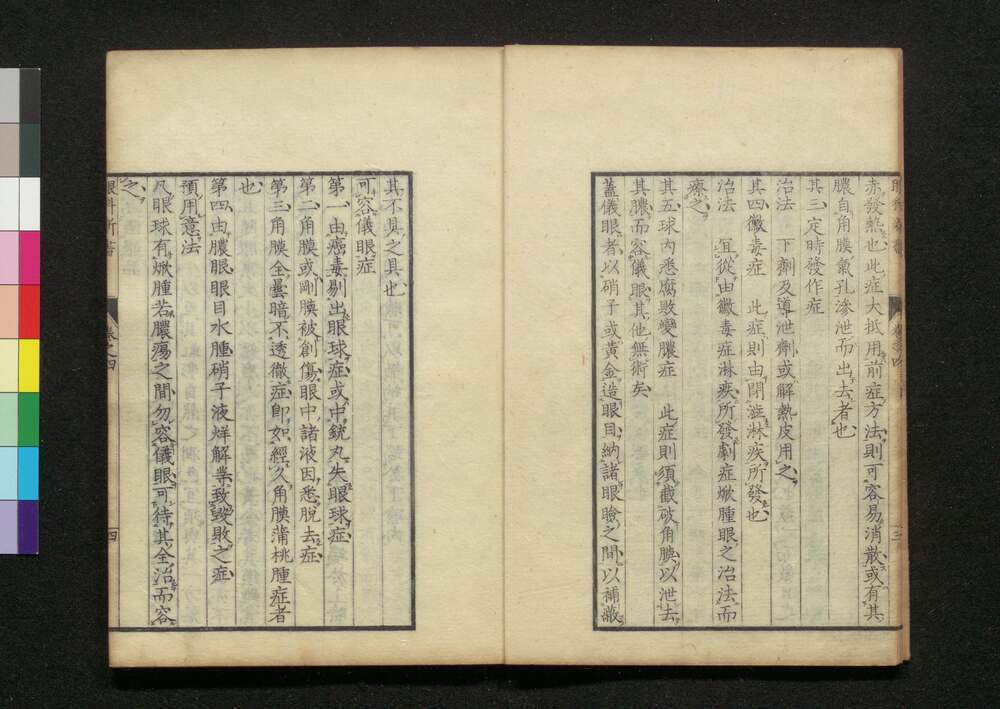 赤發熱也此症大抵用前症方法則可容易消散或有其
膿自角膜氣孔滲泄而出去者也
其三定時發作症
治法　下劑及導泄劑或解熱皮用之
其四黴毒症　此症則由閉淋疾所發也
治法　宜從由黴毒症淋疾所發劇症焮腫眼之治法而
療之
其五球內悉腐敗變膿症　此症則須截破角膜以泄去
其膿而容儀眼其他無術矣
蓋儀眼者以硝子或黃金造眼目納諸眼瞼之間以補
其不具之具也
可容儀眼症
第一由癌毒剔出眼球症或中銃丸失眼球症
第二角膜或剛膜被創傷眼中諸液因悉脫去症
第三角膜全曇暗不透徹症卽如經久角膜蒲桃腫症者
也
第四由膿眼眼目水腫硝子液烊解等致毀敗之症
預用意法
凡眼球有焮腫若膿瘍之間勿容儀眼可待其全治而容
之
眼科新書
卷之四
四